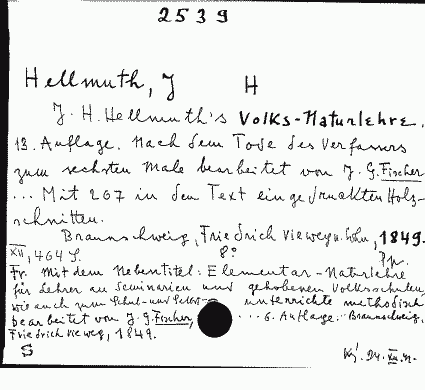 2539
Hellmuth, J H
J. H. Hellmuth's Volks-Naturlehre.
13. Auflage. Nach dem Tode des Verfassers
zum sechsten Male bearbeitet von J. G. Fischer
... Mit 267 in den Text eingedruckten Holz-
schnitten.
Braunschweig, Friedrich Vieweg u. Sohn, 1849.
XII, 464 S. 8°
Fr. Mit dem Nebentitel: Elementar-Naturlehre
für Lehrer an Seminarien und gehobenen Volksschulen,
wie auch zum Schul- und Selbst- unterrichte methodisch
bearbeitet von J. G. Fischer, ... 6. Auflage. Braunschweig,
Friedrich Vieweg, 1849.
S